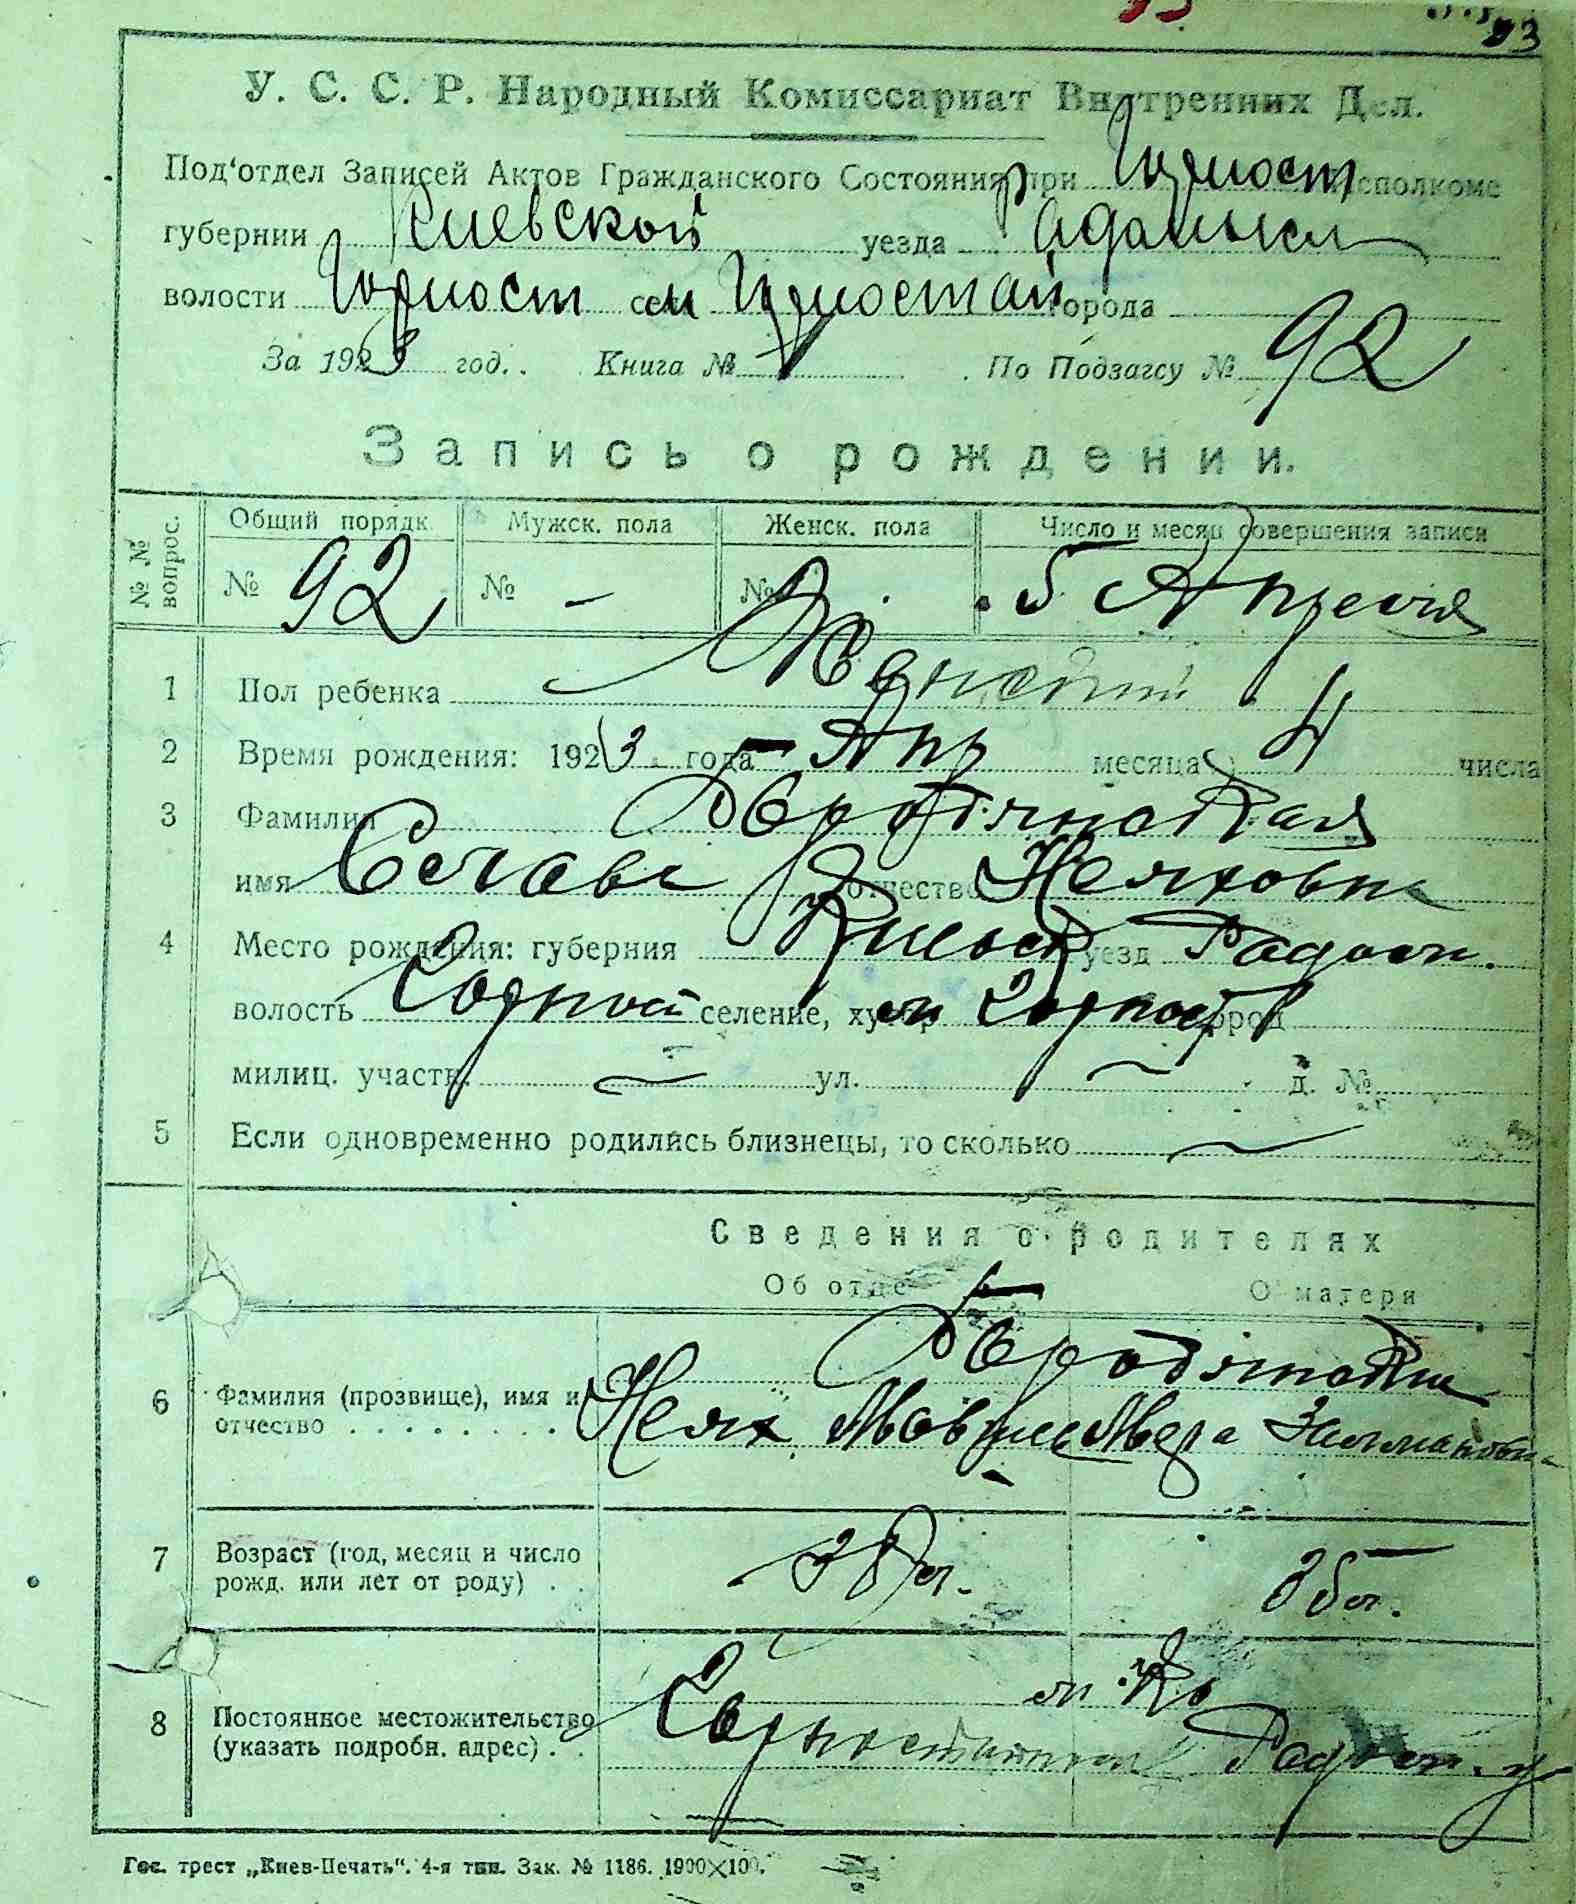 93
У. С. С. Р. Народный Комиссариат Внутренних Дел.
Под'отдел Записей Актов Гражданского Состояния при Горност исполкоме
губернии Киевской уезда Радомысл
волости Горност сел м Горностай города
За 1923 год. Книга № По Подзагсу № 92
Запись о рождении.
№ № вопрос. Общий порядк. Мужск. пола Женск. пола Число и месяц совершения записи
№ 92 № – № 5 Апреля
1 Пол ребенка Женский
2 Время рождения: 1923 года Апр месяца 4 числа
3 Фамилия Бородянская
имя отчество Неяховна
4 Место рождения: губерния Киевск уезд Радом.
волость Горност селение, хутор м Горност город
милиц. участк. — ул. — д. №
5 Если одновременно родились близнецы, то сколько —
Сведения о родителях
Об отце О матери
Бородянские
6 Фамилия (прозвище), имя и отчество Неях Мовшев Двера Зельмановн
7 Возраст (год, месяц и число рожд. или лет от роду) 38 л. 35 л.
8 Постоянное местожительство (указать подробн. адрес) м. Горностай Радом. у
Гос. трест „Киев-Печать". 4-я тип. Зак. № 1186. 1900×100.